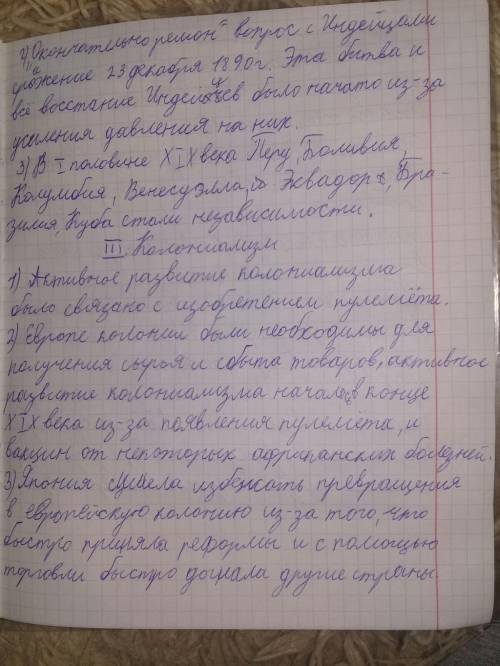 2) "Окончательно решон" вопрос с Индейцами
сражение 23 декабря 1890г. Эта битва и
всё восстание Индейцев было начато из-за
усиления давления на них.
3) В I половине XIX века Перу, Боливия,
Колумбия, Венесуэлла, Эквадор, Бра-
зилия, Куба стали независимости.
III. Колониализм
1) Активное развитие колониализма
было связано с изобретением пулемёта.
2) Европе колонии были необходимы для
получения сырья и сбыта товаров, активное
развитие колониализма началось в конце
XIX века из-за появления пулемёта, и
вакцин от некоторых африканских болезней.
3) Япония сумела избежать превращения
в европейскую колонию из-за того, что
быстро приняла реформы и с помощью
торговли быстро догнала другие страны.